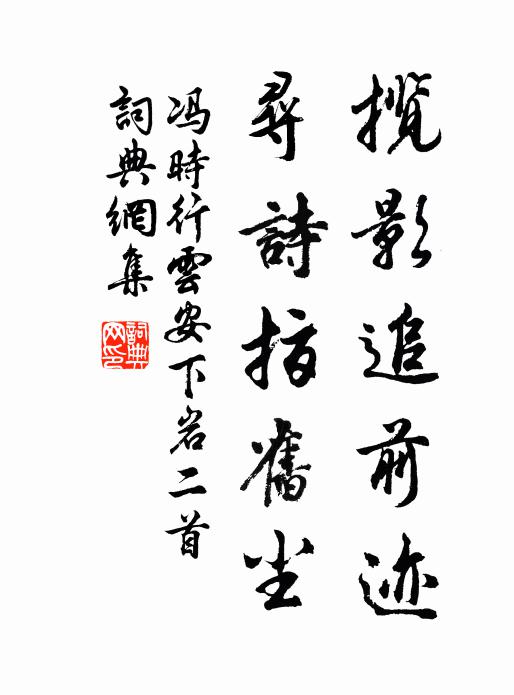 揽影追前迹
寻詩指舊尘
冯時行雲安下岩二首
詞典網集
詞典网印